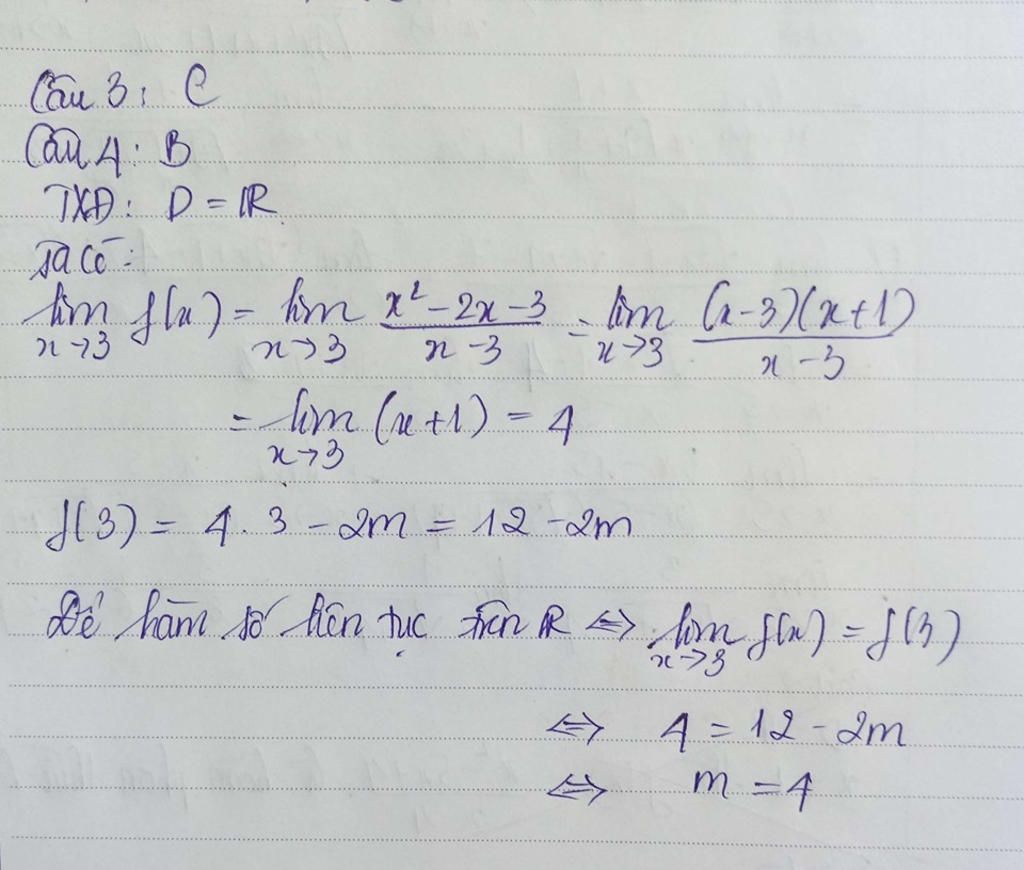 Câu 3: C
Câu 4: B
TXĐ: D = ℝ
Ta có:
lim x→3 f(x) = lim x→3 (x² - 2x - 3)/(x - 3) = lim x→3 ((x-3)(x+1))/(x-3)
= lim x→3 (x+1) = 4
f(3) = 4.3 - 2m = 12 - 2m
Để hàm số liên tục trên ℝ ⇔ lim x→3 f(x) = f(3)
⇔ 4 = 12 - 2m
⇔ m = 4